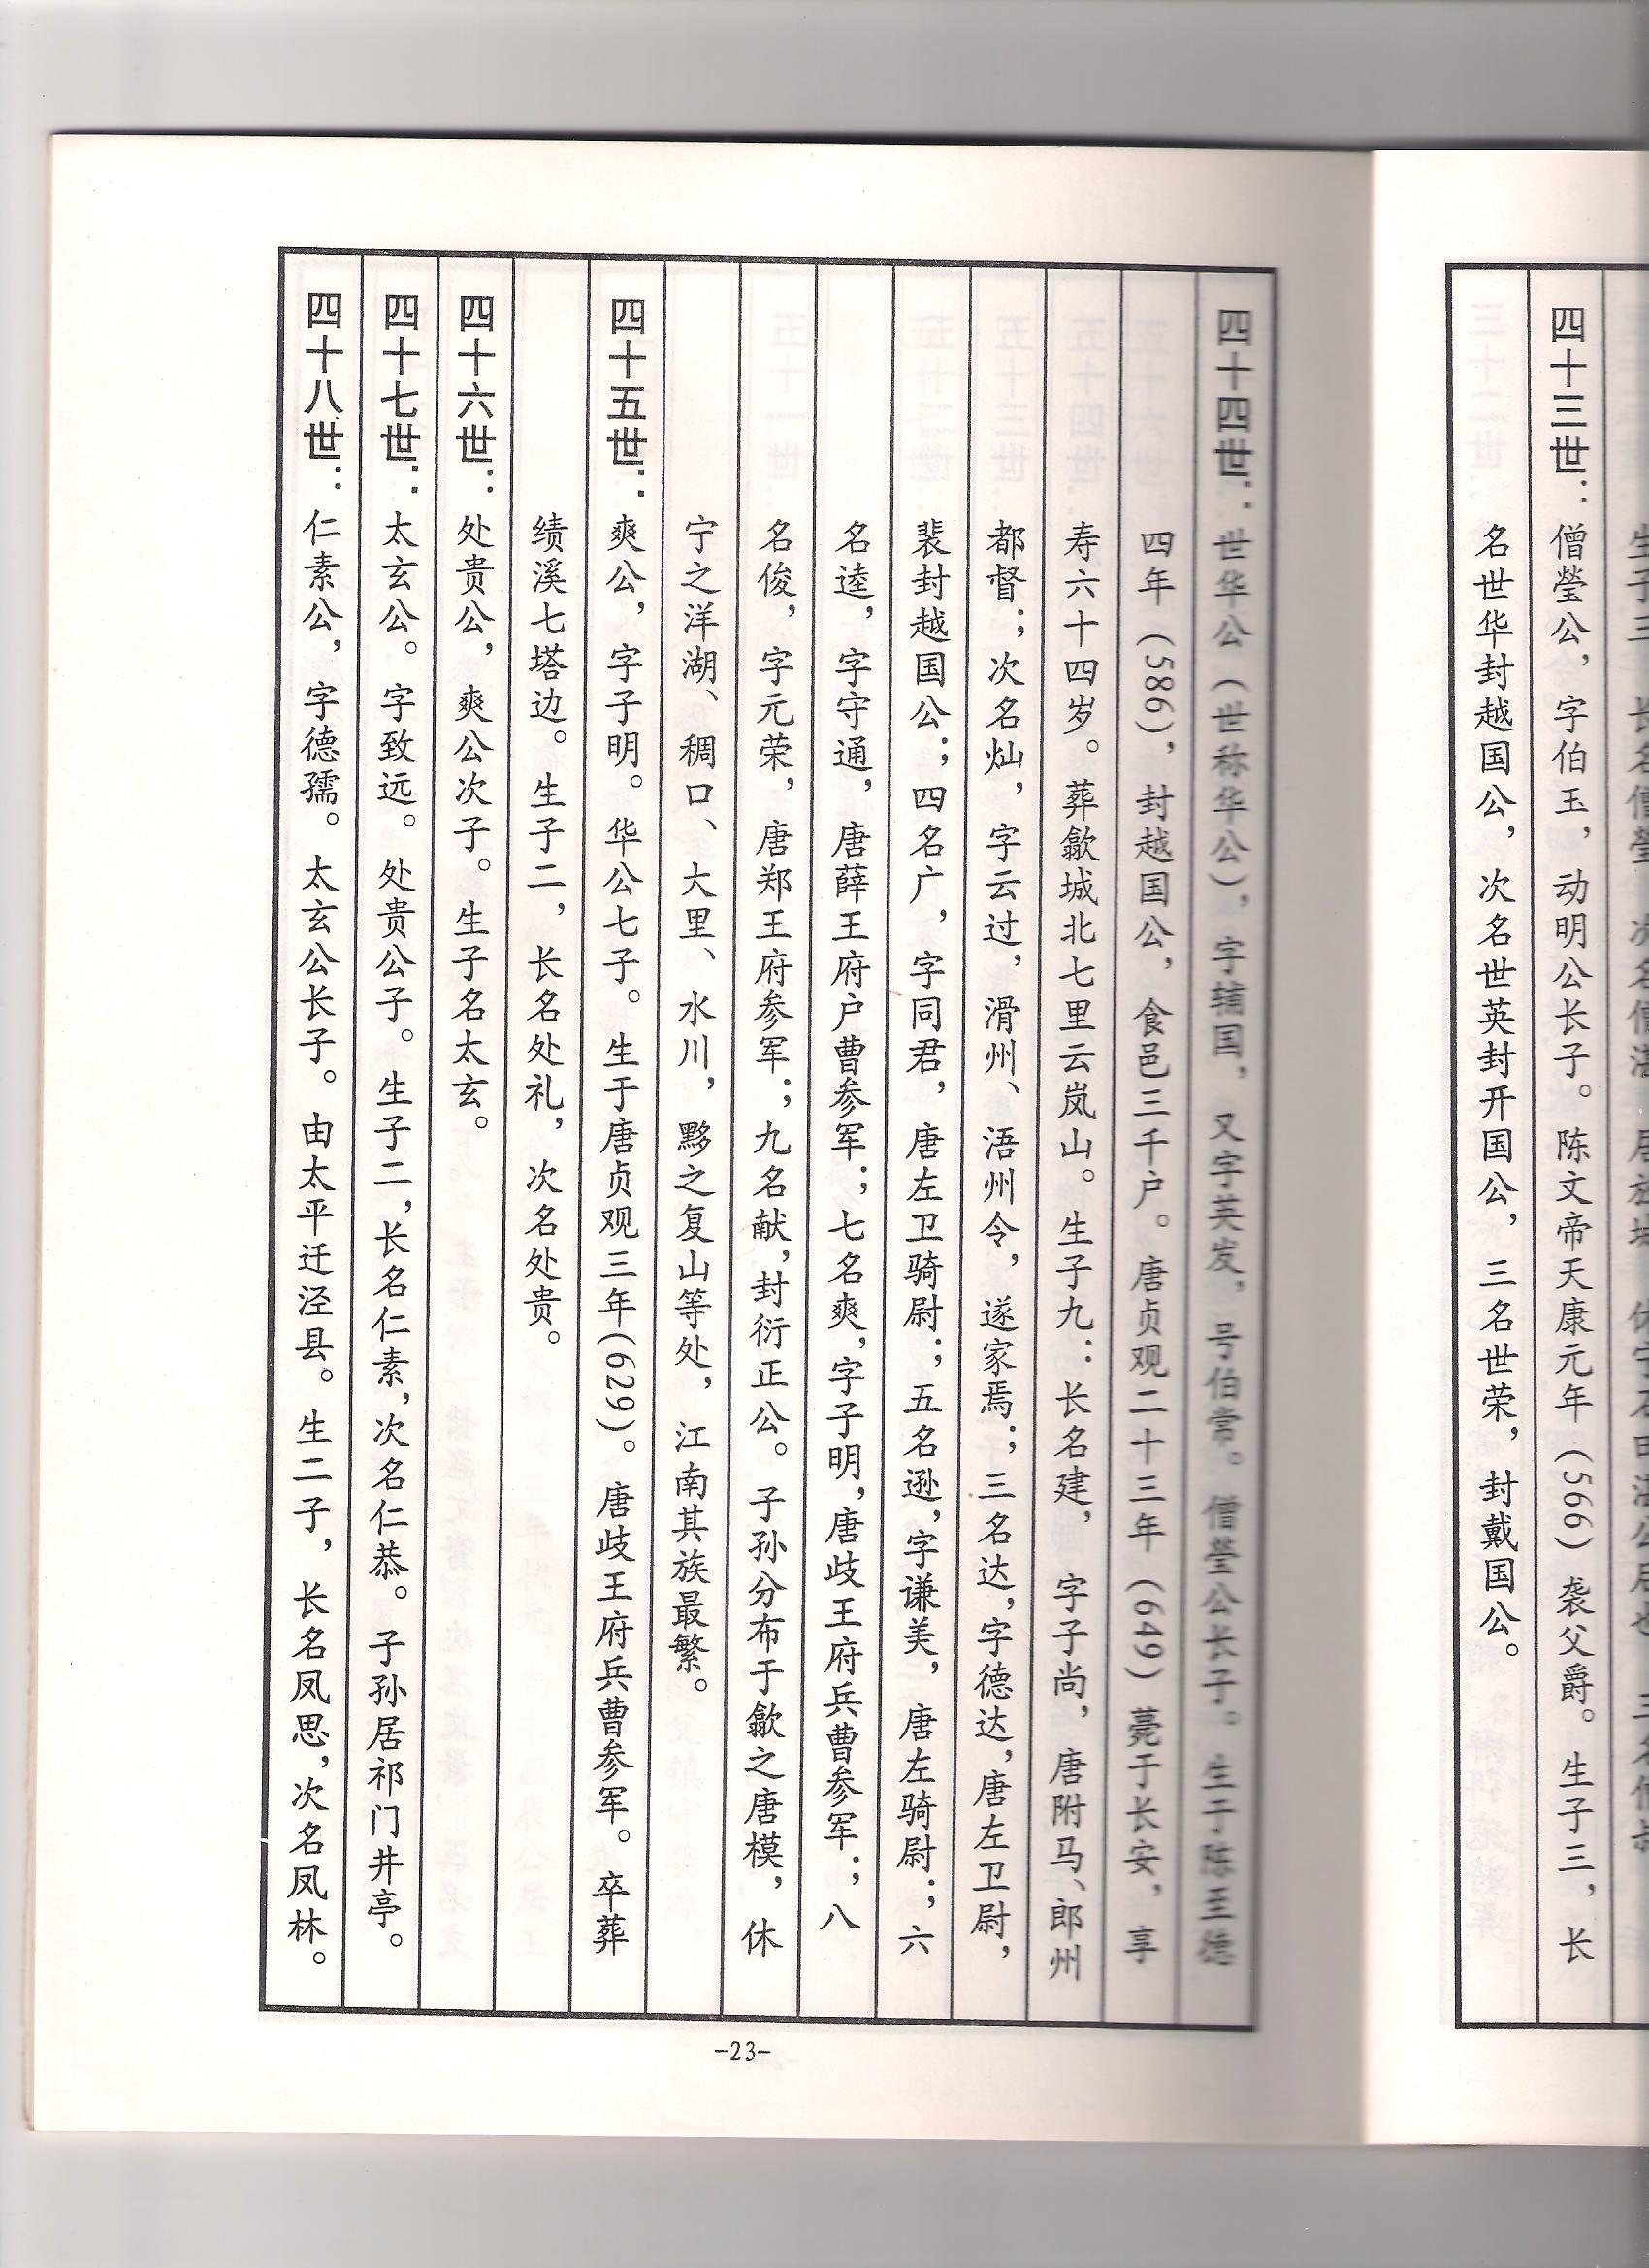 四十三世：僧瑩公，字伯玉，动明公长子。陈文帝天康元年（566）袭父爵。生子三，长
名世华封越国公，次名世英封开国公，三名世荣，封戴国公。
四十四世：世华公（世称华公），字辅国，又字英发，号伯常。僧瑩公长子。生于陈王德
四年（586），封越国公，食邑三千户。唐贞观二十三年（649）薨于长安，享
寿六十四岁。葬歙城北七里云岚山。生子九：长名建，字子尚，唐附马、郎州
都督；次名灿，字云过，滑州、浯州令，遂家焉；三名达，字德达，唐左卫尉，
裴封越国公；四名广，字同君，唐左卫骑尉；五名逊，字谦美，唐左骑尉；六
名逵，字守通，唐薛王府户曹参军；七名爽，字子明，唐歧王府兵曹参军；八
名俊，字元荣，唐郑王府参军；九名献，封衍正公。子孙分布于歙之唐模，休
宁之洋湖、稠口、大里、水川，黟之复山等处，江南其族最繁。
四十五世：爽公，字子明。华公七子。生于唐贞观三年(629)。唐歧王府兵曹参军。卒葬
绩溪七塔边。生子二，长名处礼，次名处贵。
四十六世：处贵公，爽公次子。生子名太玄。
四十七世：太玄公。字致远。处贵公子。生子二，长名仁素，次名仁恭。子孙居祁门井亭。
四十八世：仁素公，字德孺。太玄公长子。由太平迁泾县。生二子，长名凤思，次名凤林。
-23-